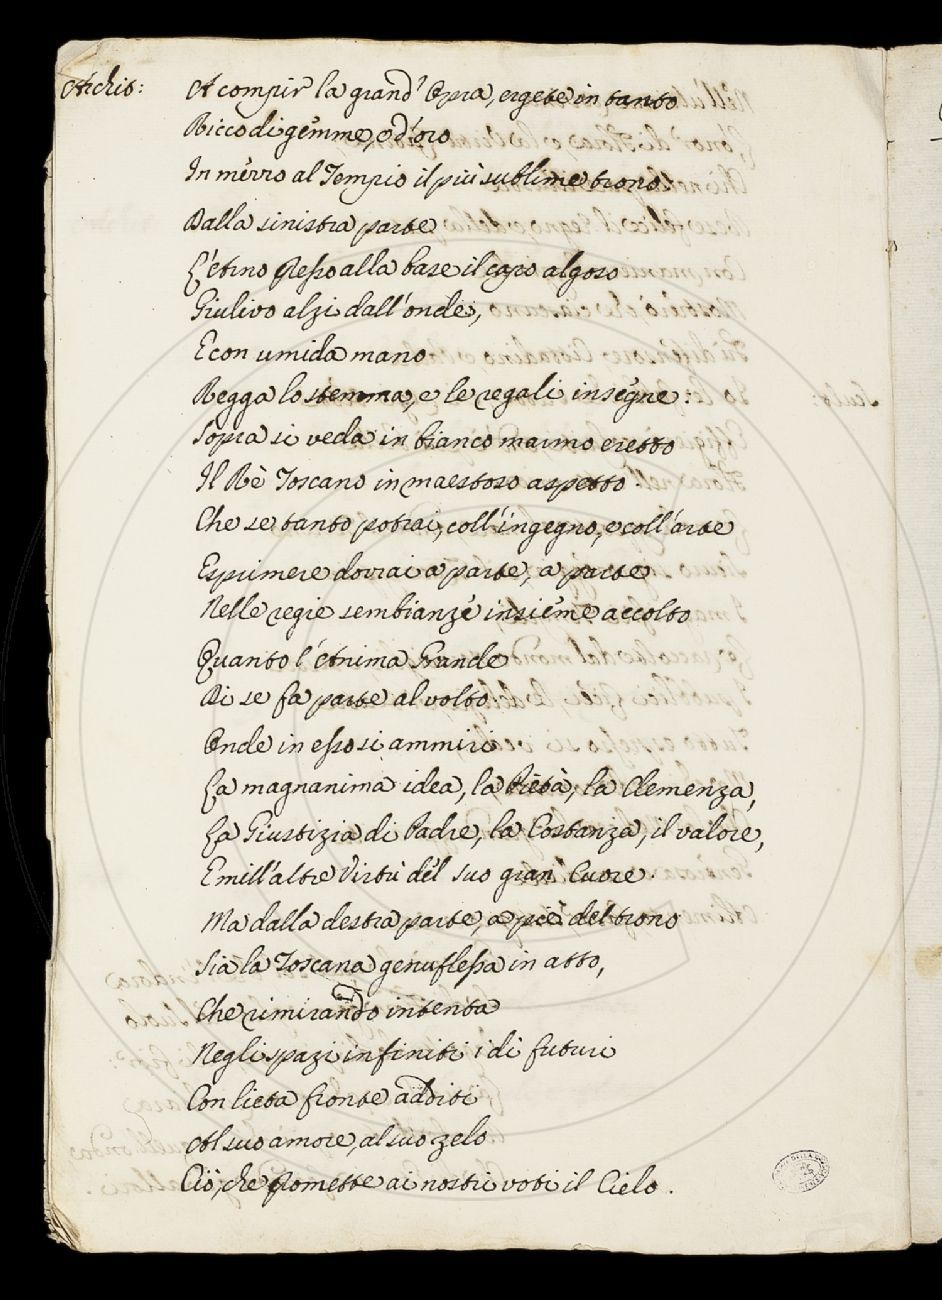 Archit: A compir la grand' Opra, ergete in tanto
Ricco di gemme, e d'oro
In mezzo al Tempio il più sublime trono.
Dalla sinistra parte
L'Arno flesso alla base il capo algoso
Giulivo alzi dall'onde,
E con umida mano
Regga lo stemma, e le regali insegne:
Sopra si veda in bianco marmo eretto
Il Rè Toscano in maestoso aspetto.
Che se tanto potrai, coll'ingegno, e coll'arte
Esprimere dovrai a parte, a parte
Nelle regie sembianze insieme accolto
Quanto l'Anima Grande
Di se fa parte al volto
Onde in esso si ammiri
La magnanima idea, la Pietà, la Clemenza,
La Giustizia di Padre, la Costanza, il valore,
E mill'altre Virtù del suo gran Cuore.
Ma dalla destra parte, a piè del trono
Sia la Toscana genuflessa in atto,
Che rimirando intenta
Negli spazi infiniti i dì futuri
Con lieta fronte additi
Al suo amore, al suo zelo
Ciò, che promette ai nostri voti il Cielo.